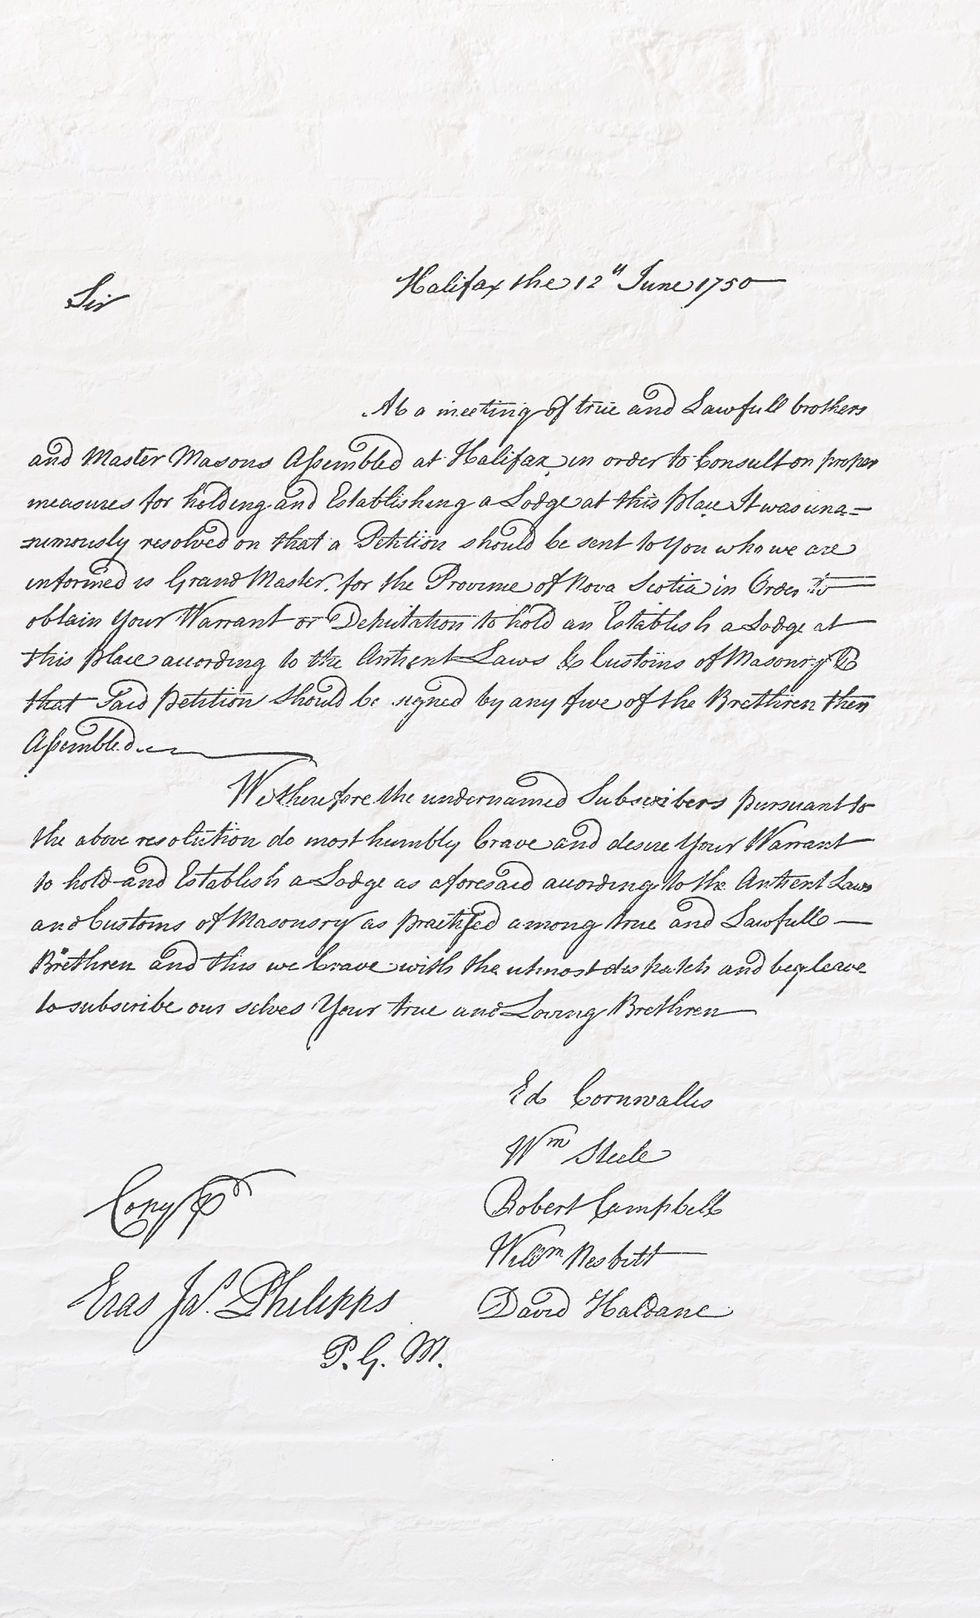 Halifax the 12th June 1750
Sir
At a meeting of true and Lawfull brothers
and Master Masons Assembled at Halifax in order to Consult on proper
measures for holding and Establishing a Lodge at this place It was una=
nimously resolved on that a Petition should be sent to You who we are
informed is Grand Master for the Province of Nova Scotia in Order to
obtain Your Warrant or Deputation to hold an Establish a Lodge at
this place according to the Antient Laws & Customs of Masonry &
that Said petition should be signed by any five of the Brethren then
Assembled
We therefore the undernamed Subscribers pursuant to
the above resolution do most humbly Crave and desire Your Warrant
to hold and Establish a Lodge as aforesaid according to the Antient Laws
and Customs of Masonsry as practised among true and Lawfull
Brethren and this we Crave with the utmost dispatch and beg leave
to subscribe our selves Your true and Loving Brethren
Ed Cornwallis
Wm Steele
Robert Campbell
Willm Nesbitt
David Haldane
Copy
Eras Jas. Philipps
P. G. M.